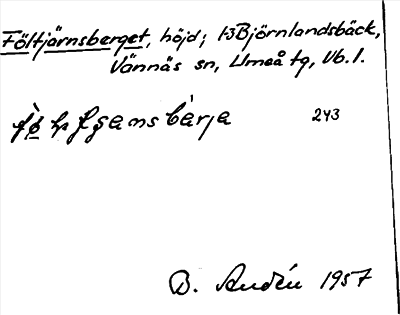 Följtjärnsberget, höjd; 1-3 Björnlandsbäck,
Vännäs sn, Umeå tg, Vb. l.
243
B. Audén 1957